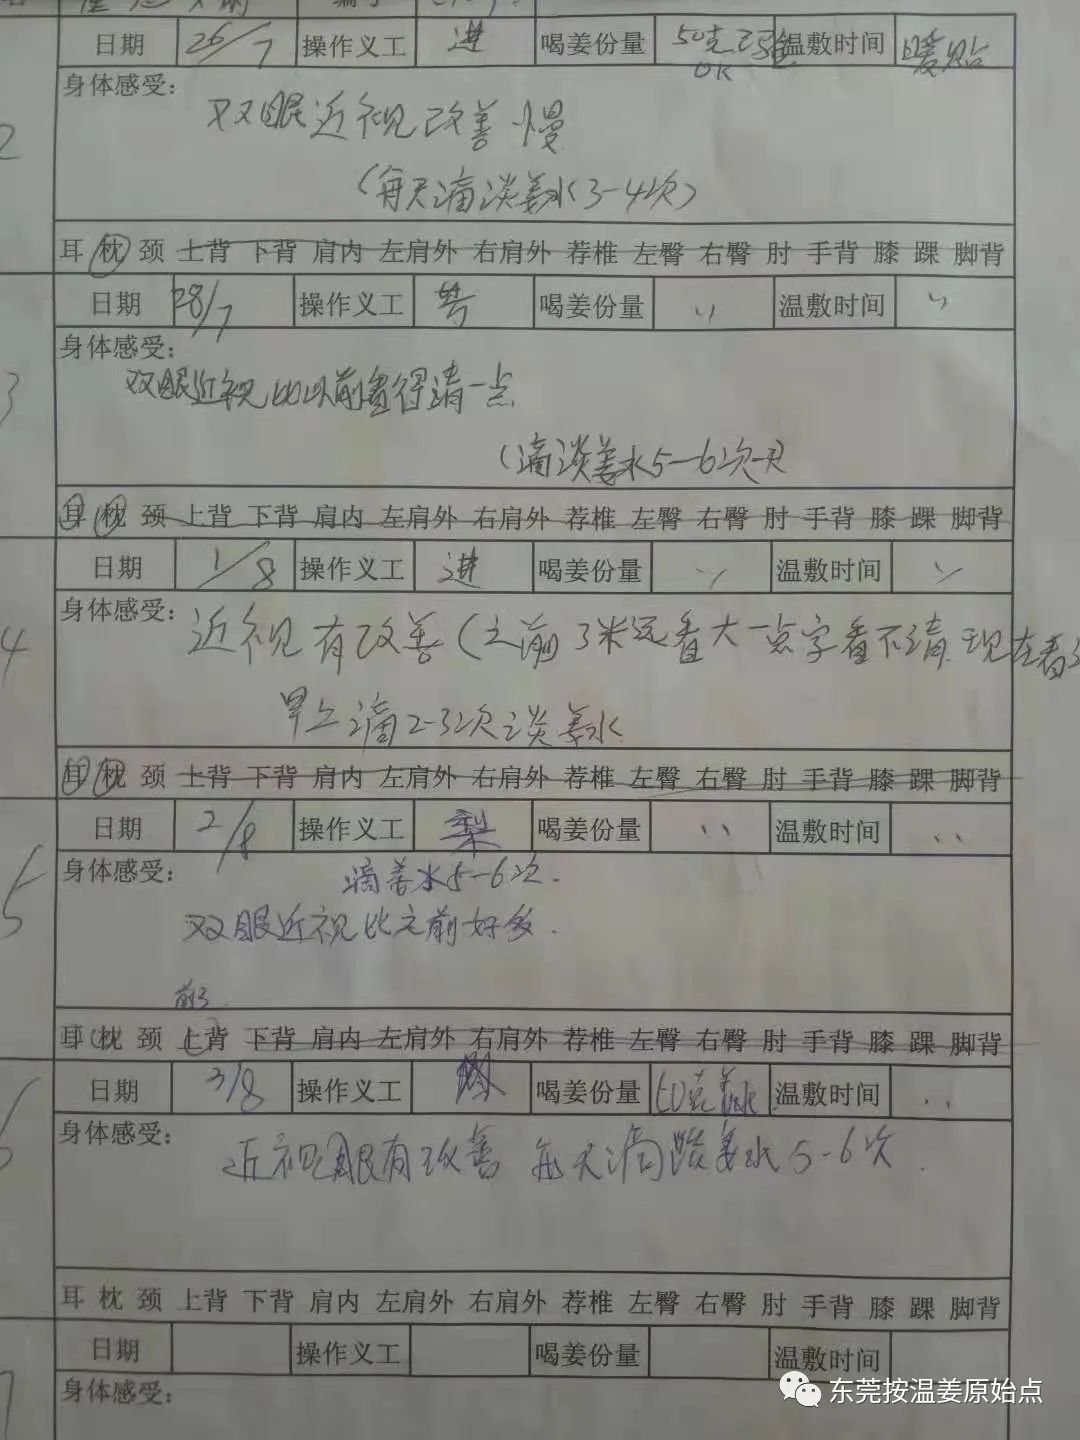 2
日期 26/7 操作义工 进 喝姜份量 50克 OK 温敷时间 暖贴
身体感受：
双眼近视改善慢
（每天滴淡姜水3-4次）
耳 枕 颈 上背 下背 肩内 左肩外 右肩外 荐椎 左臀 右臀 肘 手背 膝 踝 脚背
3
日期 28/7 操作义工 喝姜份量 〃 温敷时间 〃
身体感受：
双眼近视比以前看得清一点
（滴淡姜水5-6次一天
耳 枕 颈 上背 下背 肩内 左肩外 右肩外 荐椎 左臀 右臀 肘 手背 膝 踝 脚背
4
日期 1/8 操作义工 进 喝姜份量 〃 温敷时间 〃
身体感受：
近视有改善（之前3米远看大一点字看不清 现在看
早上滴2-3次淡姜水
耳 枕 颈 上背 下背 肩内 左肩外 右肩外 荐椎 左臀 右臀 肘 手背 膝 踝 脚背
5
日期 2/8 操作义工 梨 喝姜份量 〃 温敷时间 〃
身体感受：
滴姜水5-6次.
双眼近视比之前好多.
耳 枕 颈 上背 下背 肩内 左肩外 右肩外 荐椎 左臀 右臀 肘 手背 膝 踝 脚背
6
日期 3/8 操作义工 喝姜份量 50克姜水 温敷时间 〃
身体感受：
近视眼有改善 每天滴 姜水5-6次.
耳 枕 颈 上背 下背 肩内 左肩外 右肩外 荐椎 左臀 右臀 肘 手背 膝 踝 脚背
7
日期 操作义工 喝姜份量 温敷时间
身体感受：
东莞按温姜原始点